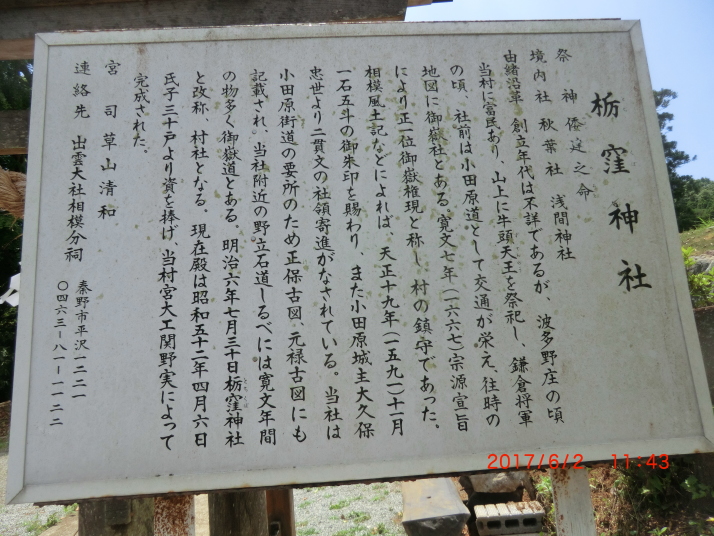 栃窪神社
祭神 倭建之命
境内社 秋葉社 浅間神社
由緒沿革 創立年代は不詳であるが、波多野庄の頃
当村に富民あり、山上に牛頭天王を祭祀し、鎌倉将軍
の頃、社前は小田原道として交通が栄え、往時の
地図に御嶽社とある。寛文七年(一六六七)宗源宣旨
により正一位御嶽権現と称し、村の鎮守であった。
相模風土記などによれば、天正十九年(一五九一)十一月
一石五斗の御朱印を賜わり、また小田原城主大久保
忠世より二貫文の社領寄進がなされている。当社は
小田原街道の要所のため正保古図、元禄古図にも
記載され、当社附近の野立石道しるべには寛文年間
の物多く御嶽道とある。明治六年七月三十日栃窪神社
とちくぼ
と改称、村社となる。現在殿は昭和五十二年四月六日
氏子三十戸より資を捧げ、当村宮大工関野実によって
完成された。
宮司 草山清和
連絡先 出雲大社相模分祠
秦野市平沢一二二一
〇四六三-八一-一一二二
2017/6/2 11:43